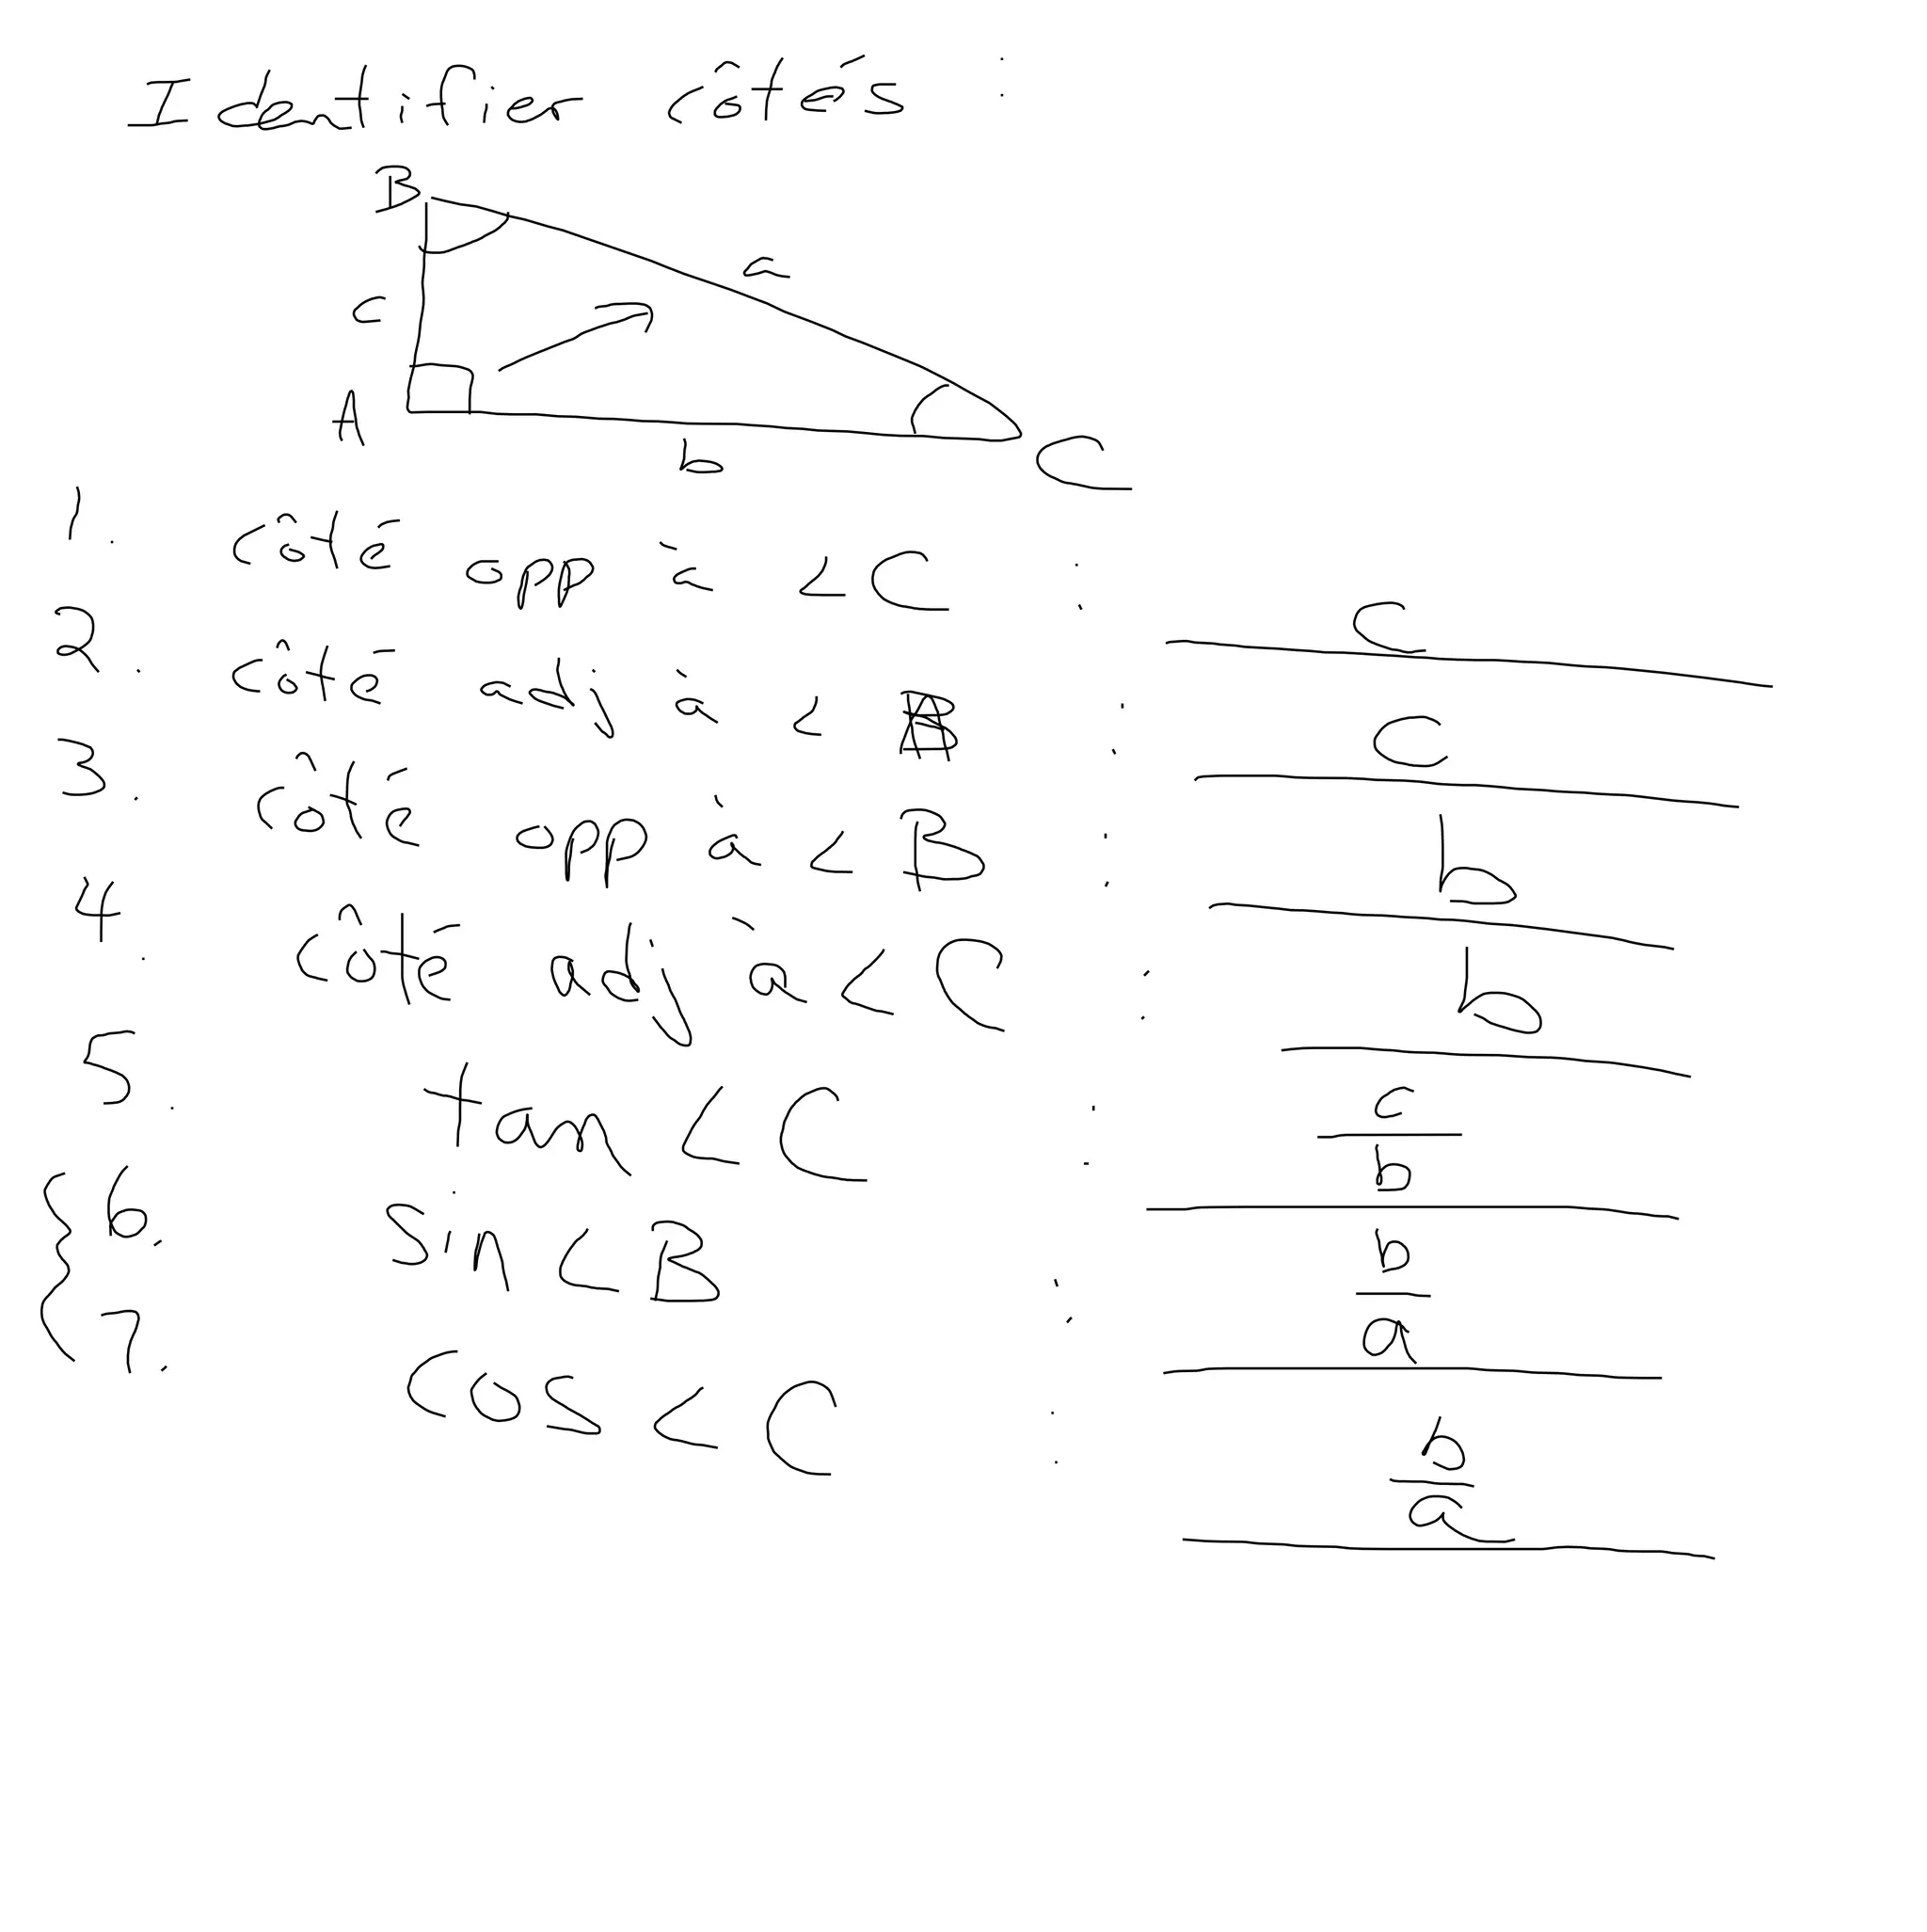 Identifier côtés :
B
a
c
A
b
C
1. côté opp à <C : c
2. côté adj à <B : c
3. côté opp à <B : b
4. côté adj à <C : b
5. tan <C : c/b
6. sin <B : b/a
7. cos <C : b/a